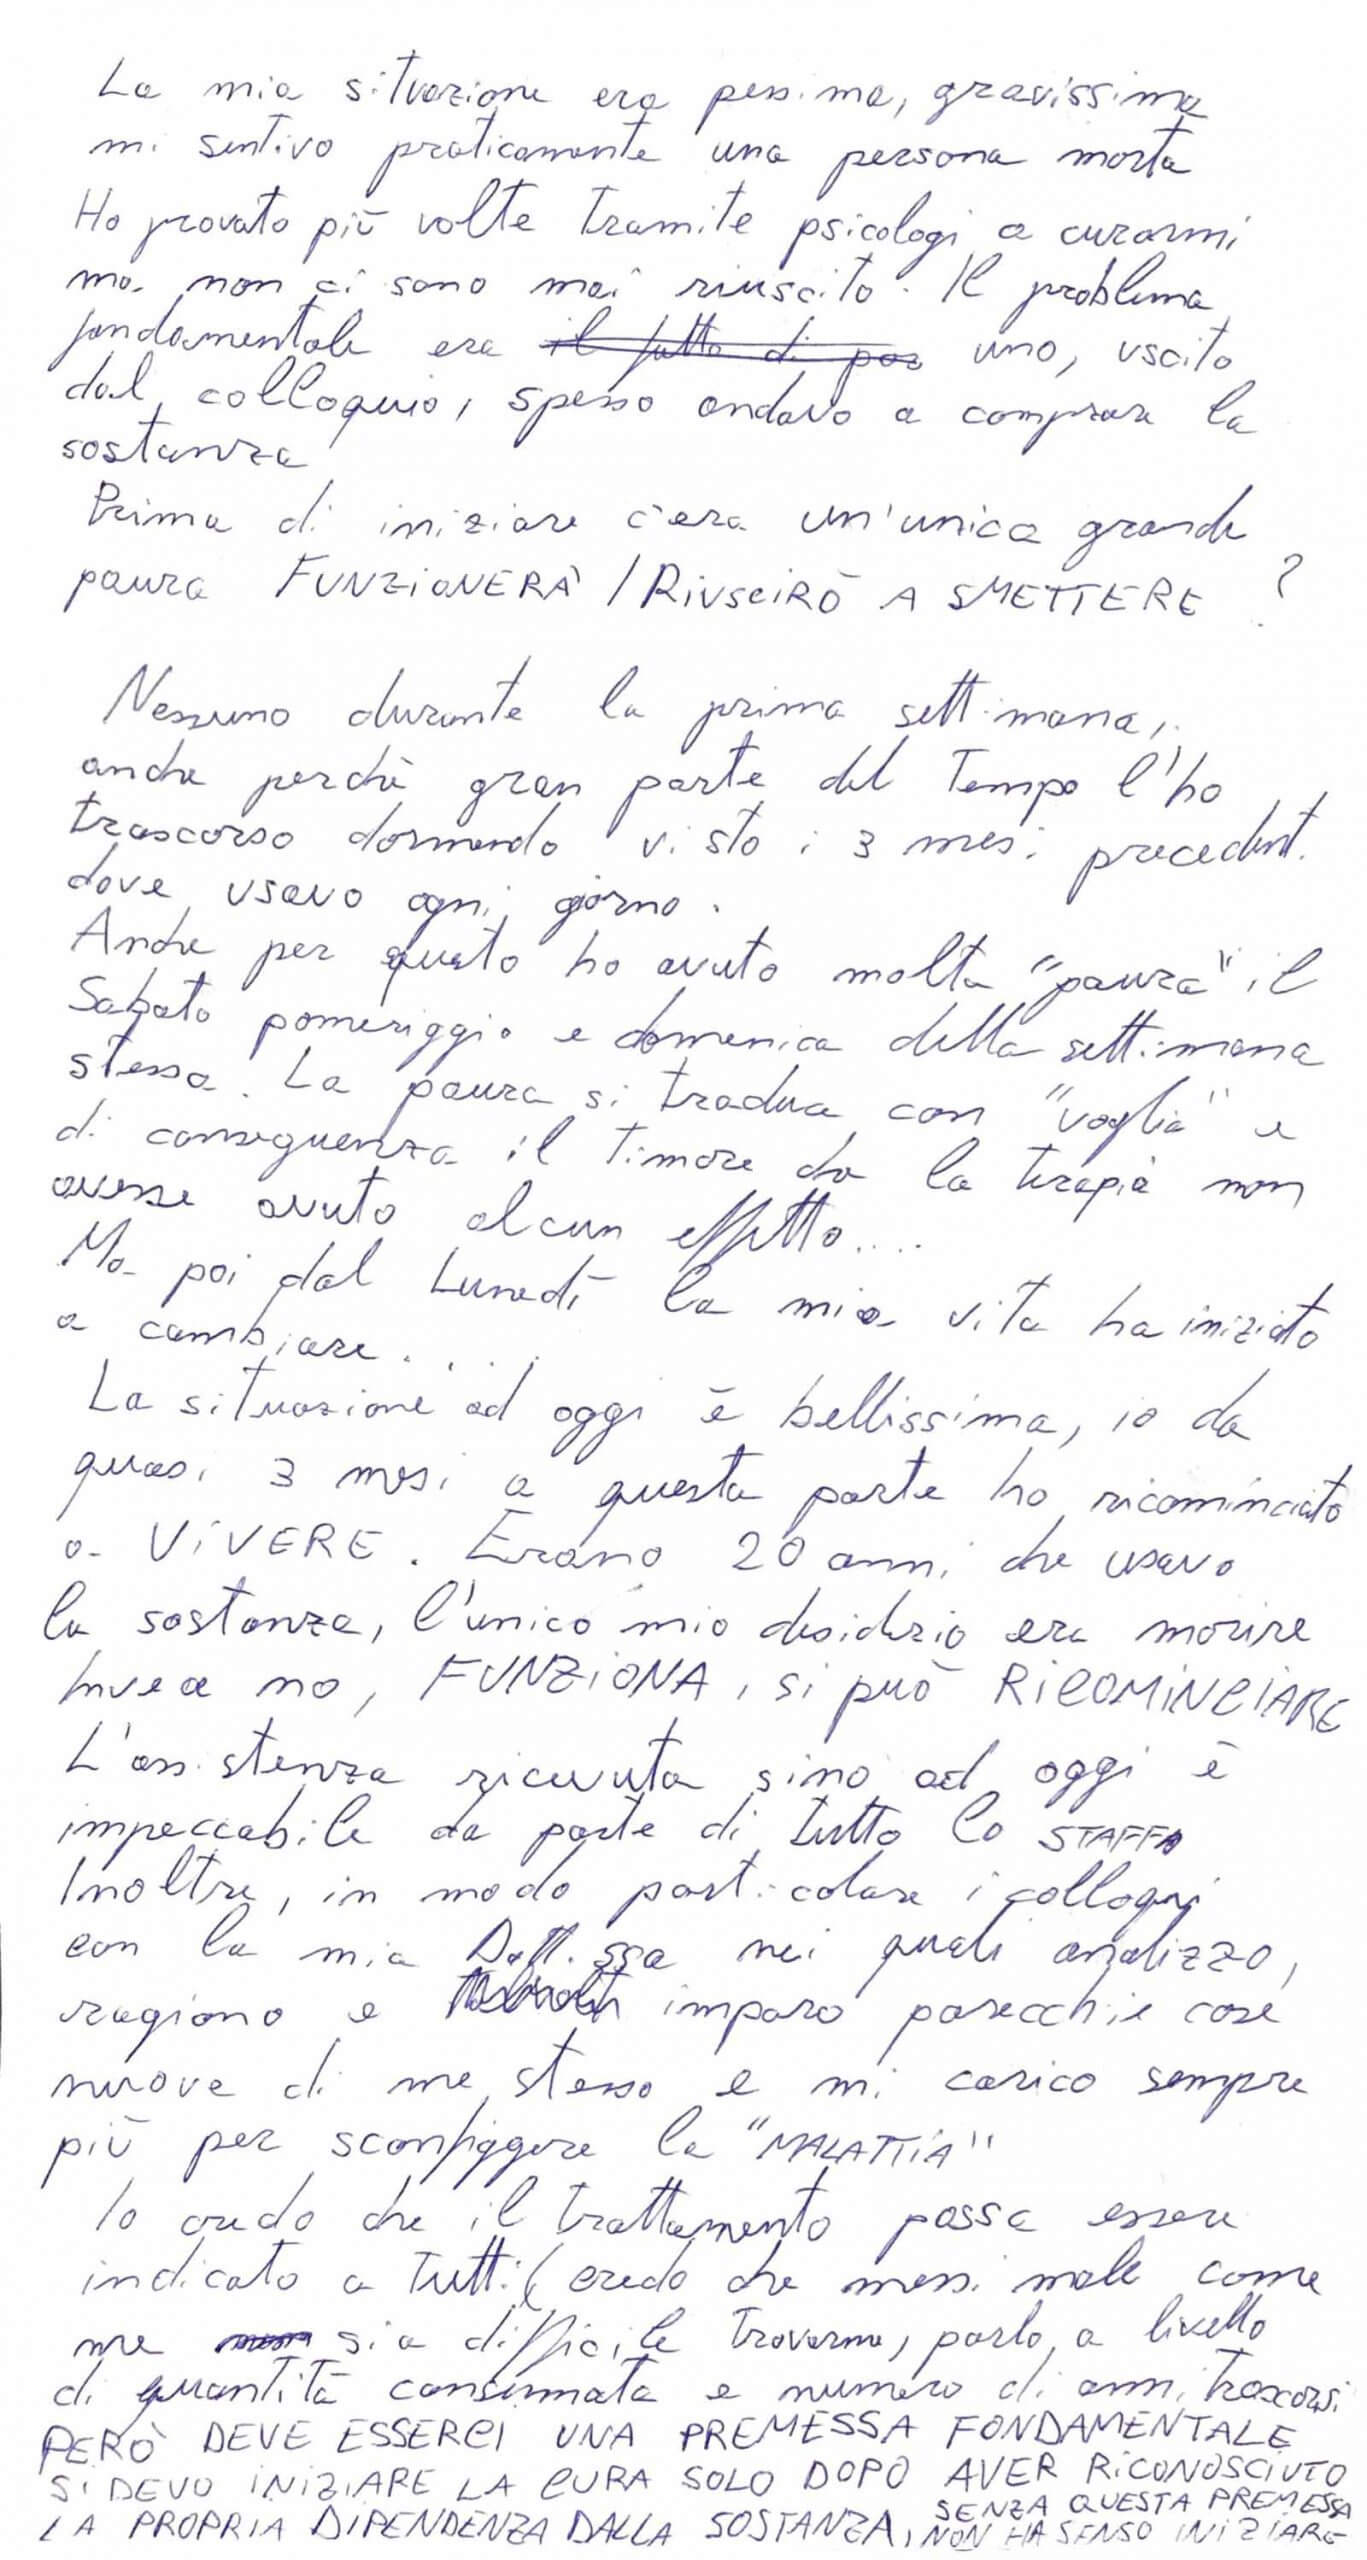 La mia situazione era pessima, gravissima
mi sentivo praticamente una persona morta
Ho provato più volte tramite psicologi a curarmi
ma non ci sono mai riuscito. Il problema
fondamentale era il fatto di uno, uscito
dal colloquio, spesso andavo a comprare la
sostanza
Prima di iniziare c'era un'unica grande
paura FUNZIONERÀ / RIUSCIRÒ A SMETTERE ?
Nessuno durante la prima settimana,
anche perché gran parte del tempo l'ho
trascorso dormendo visto i 3 mesi precedenti
dove usavo ogni giorno.
Anche per questo ho avuto molta "paura" il
Sabato pomeriggio e domenica della settimana
stessa. La paura si traduce con "voglia" e
di conseguenza il timore che la terapia non
avesse avuto alcun effetto....
Ma poi dal Lunedì la mia vita ha iniziato
a cambiare.....
La situazione ad oggi è bellissima, io da
quasi 3 mesi a questa parte ho ricominciato
a VIVERE. Erano 20 anni che usavo
la sostanza, l'unico mio desiderio era morire
Invece no, FUNZIONA, si può RICOMINCIARE
L'assistenza ricevuta sino ad oggi è
impeccabile da parte di tutto lo STAFF
Inoltre, in modo particolare i colloqui
con la mia Dott.ssa nei quali analizzo,
ragiono e imparo parecchie cose
nuove di me stesso e mi carico sempre
più per sconfiggere la "MALATTIA"
Io credo che il trattamento possa essere
indicato a tutti (credo che messi male come
me sia difficile trovarne, parlo a livello
di quantità consumata e numero di anni trascorsi
PERÒ DEVE ESSERCI UNA PREMESSA FONDAMENTALE
SI DEVO INIZIARE LA CURA SOLO DOPO AVER RICONOSCIUTO
LA PROPRIA DIPENDENZA DALLA SOSTANZA, SENZA QUESTA PREMESSA
NON HA SENSO INIZIARE